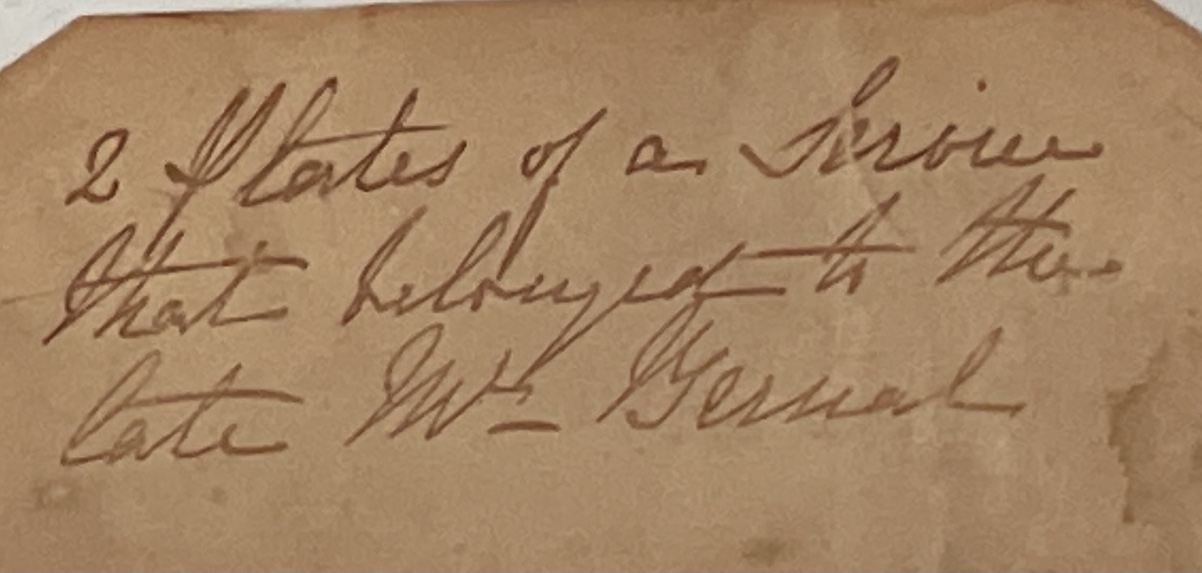 2 Plates of a Service
that belonged to the
late Mr